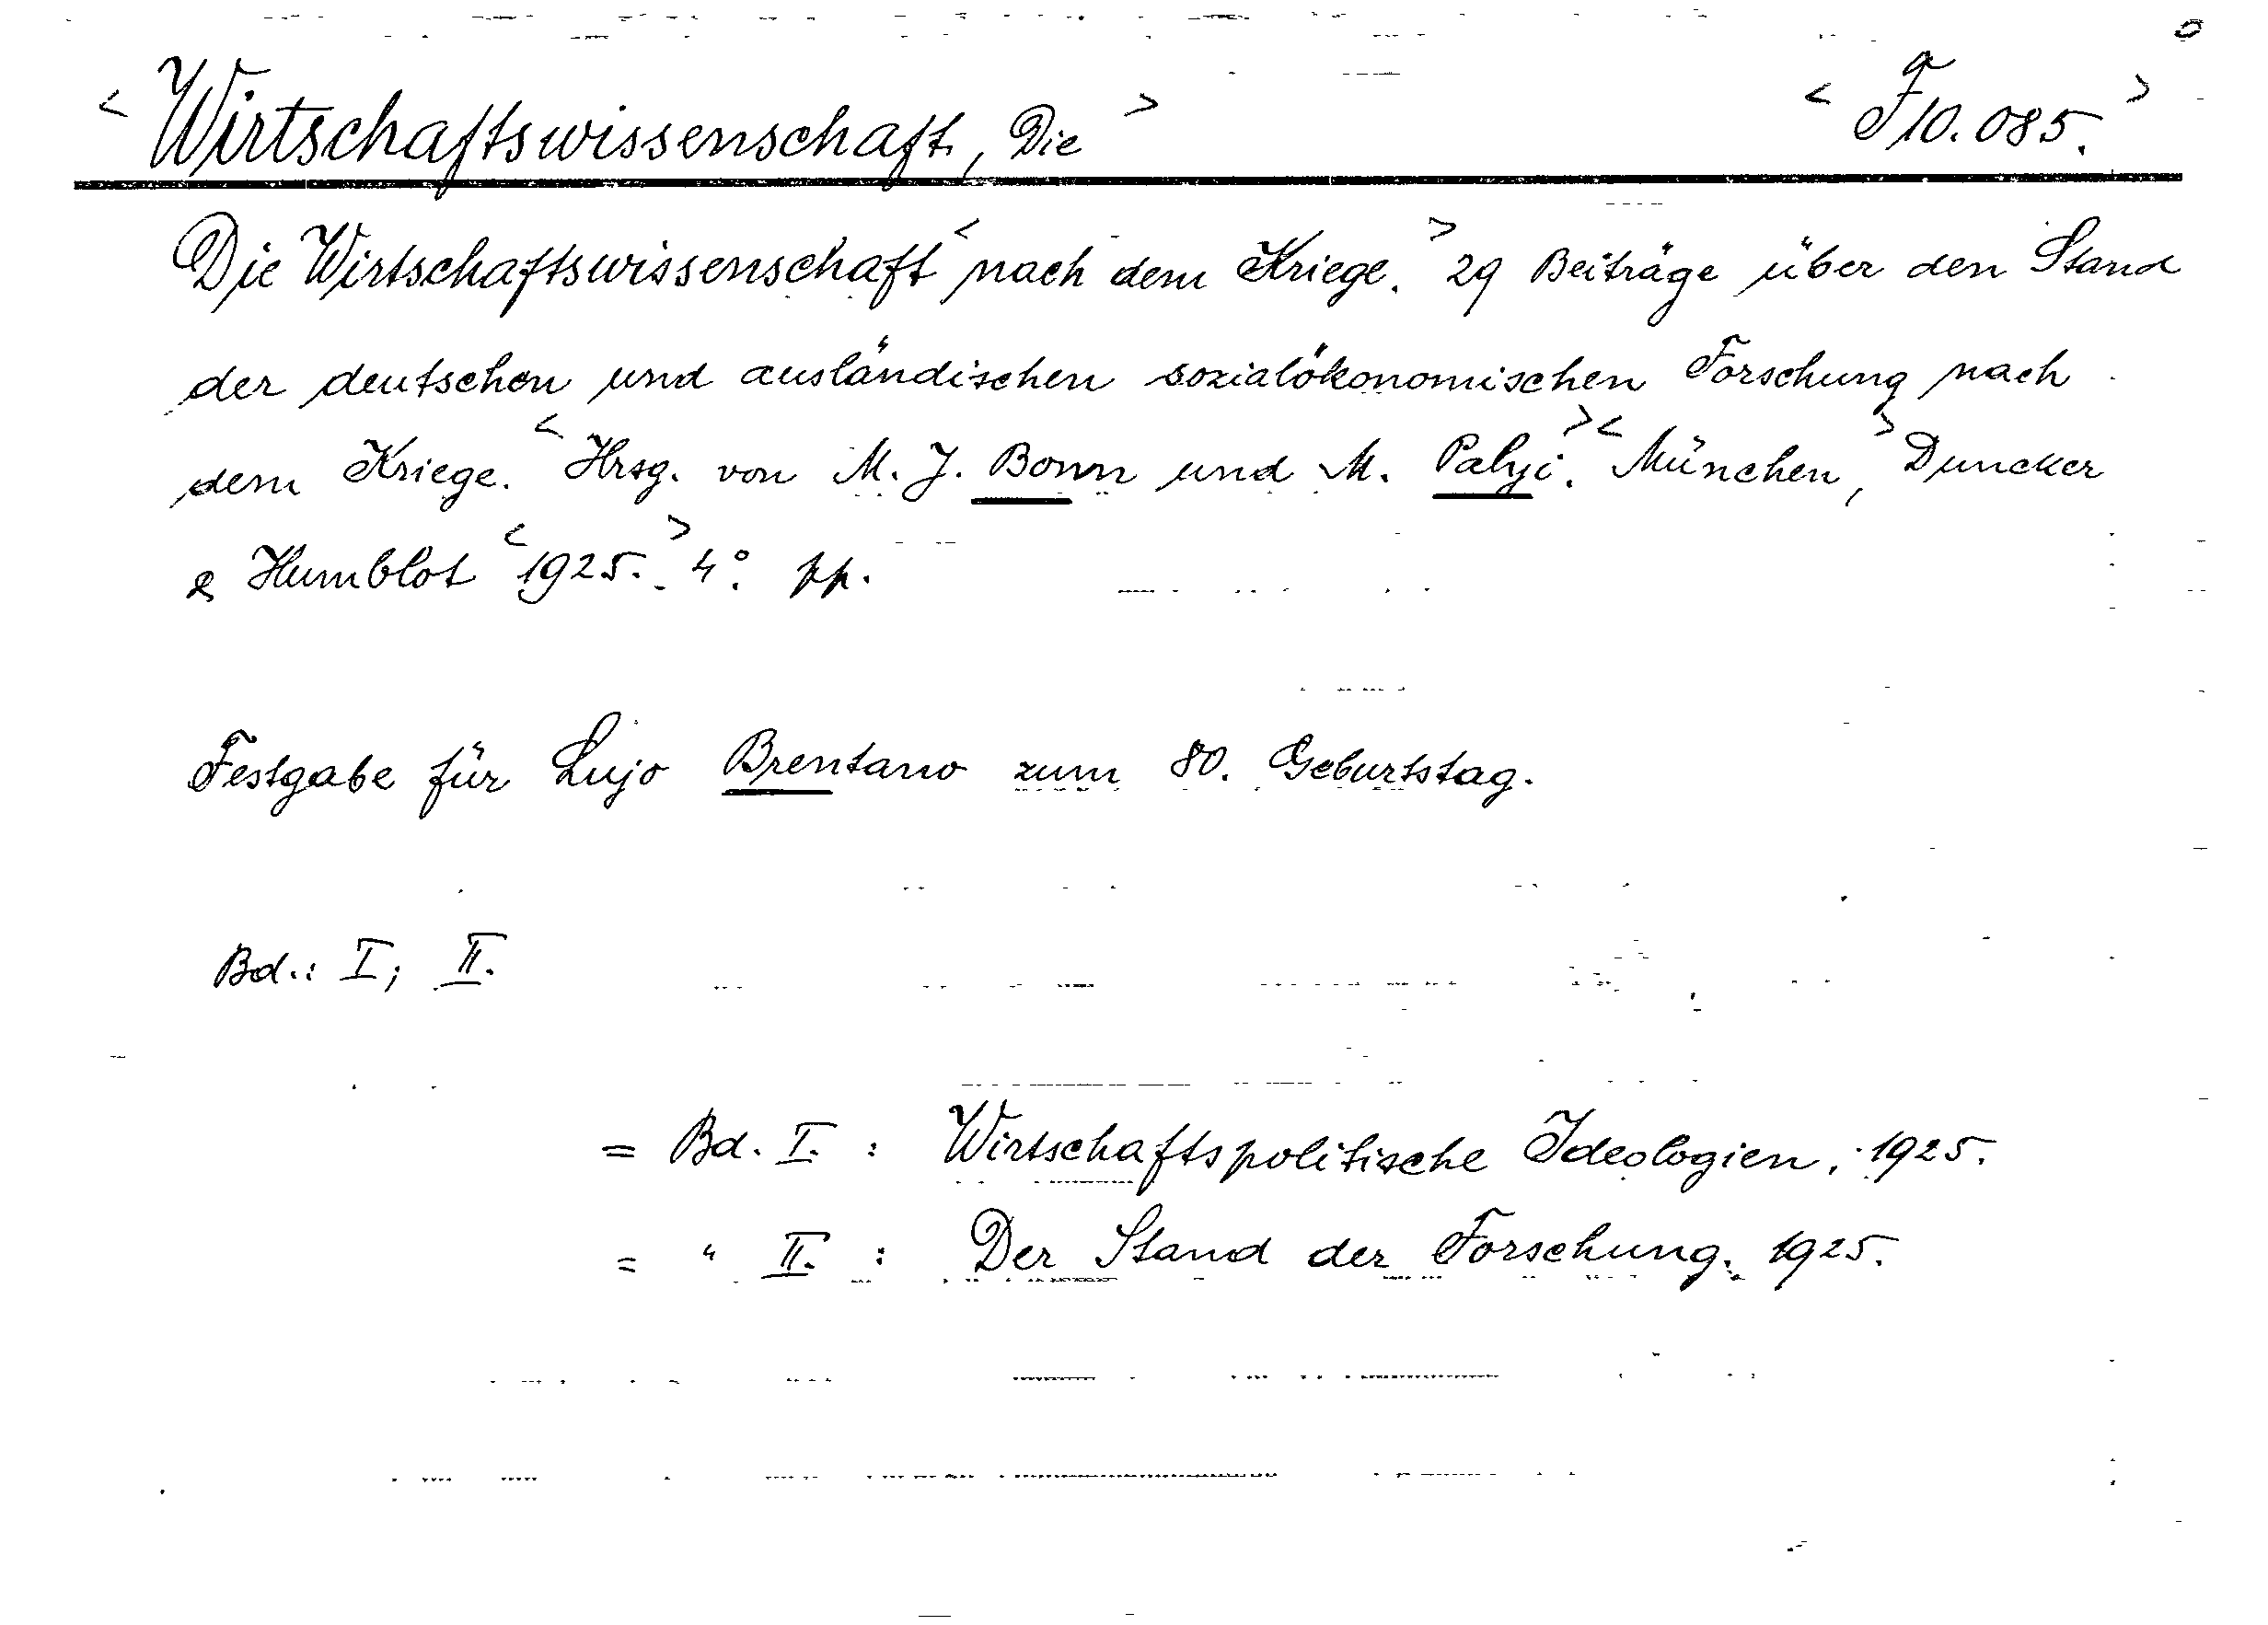 < Wirtschaftswissenschaft, Die > < F 10.085. >
Die Wirtschaftswissenschaft < nach dem Kriege. > 29 Beiträge über den Stand
der deutschen und ausländischen sozialökonomischen Forschung nach
dem Kriege. < Hrsg. von M. J. Bonn und M. Palyi. > < München, > Duncker
& Humblot < 1925. > 4°. pp.
Festgabe für Lujo Brentano zum 80. Geburtstag.
Bd.: I; II.
= Bd. I. : Wirtschaftspolitische Ideologien. 1925.
= " II. : Der Stand der Forschung. 1925.